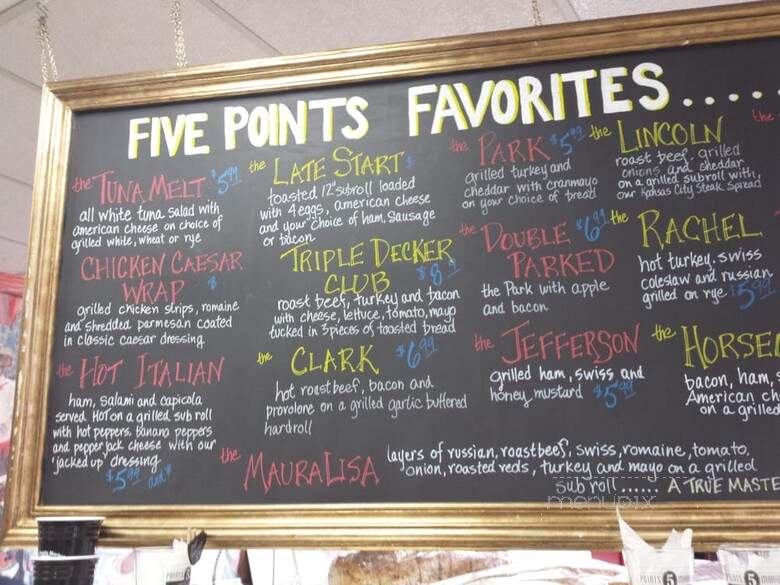 FIVE POINTS FAVORITES.....
the TUNA MELT $5.99
all white tuna salad with
american cheese on choice of
grilled white, wheat or rye
CHICKEN CAESAR
WRAP $
grilled chicken strips, romaine
and shredded parmesan coated
in classic caesar dressing
the HOT ITALIAN
ham, salami and capicola
served HOT on a grilled sub roll
with hot peppers, banana peppers
and pepper jack cheese with our
"jacked up" dressing
$5.99 and*
the LATE START $
toasted 12" subroll loaded
with 4 eggs, american cheese
and your choice of ham, sausage
or bacon
TRIPLE DECKER
CLUB $8
roast beef, turkey and bacon
with cheese, lettuce, tomato, mayo
tucked in 3 pieces of toasted bread
the CLARK $6.99
hot roast beef, bacon and
provolone on a grilled garlic buttered
hard roll
the PARK $5.99
grilled turkey and
cheddar with cranmayo
on your choice of bread
the DOUBLE $6.99
PARKED
the Park with apple
and bacon
the JEFFERSON
grilled ham, swiss and
honey mustard $5.99
the LINCOLN
roast beef, grilled
onions and cheddar
on a grilled subroll with
our Kansas City Steak Spread
the RACHEL
hot turkey, swiss
coleslaw and russian
grilled on rye $5.99
the HORSE
bacon, ham,
American ch
on a grilled
the
the MAURALISA
layers of russian, roast beef, swiss, romaine, tomato,
onion, roasted reds, turkey and mayo on a grilled
sub roll...... A TRUE MASTE
menupix
POINTS 5
5